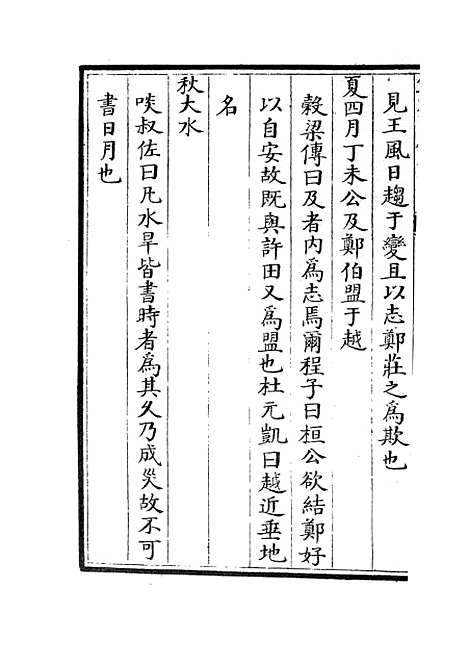 見王風日趨于變且以志鄭莊之為欺也
夏四月丁未公及鄭伯盟于越
穀梁傳曰及者内為志焉爾程子曰桓公欲結鄭好
以自安故既與許田又為盟也杜元凱曰越近垂地
名
秋大水
啖叔佐曰凡水旱皆書時者為其久乃成災故不可
書日月也